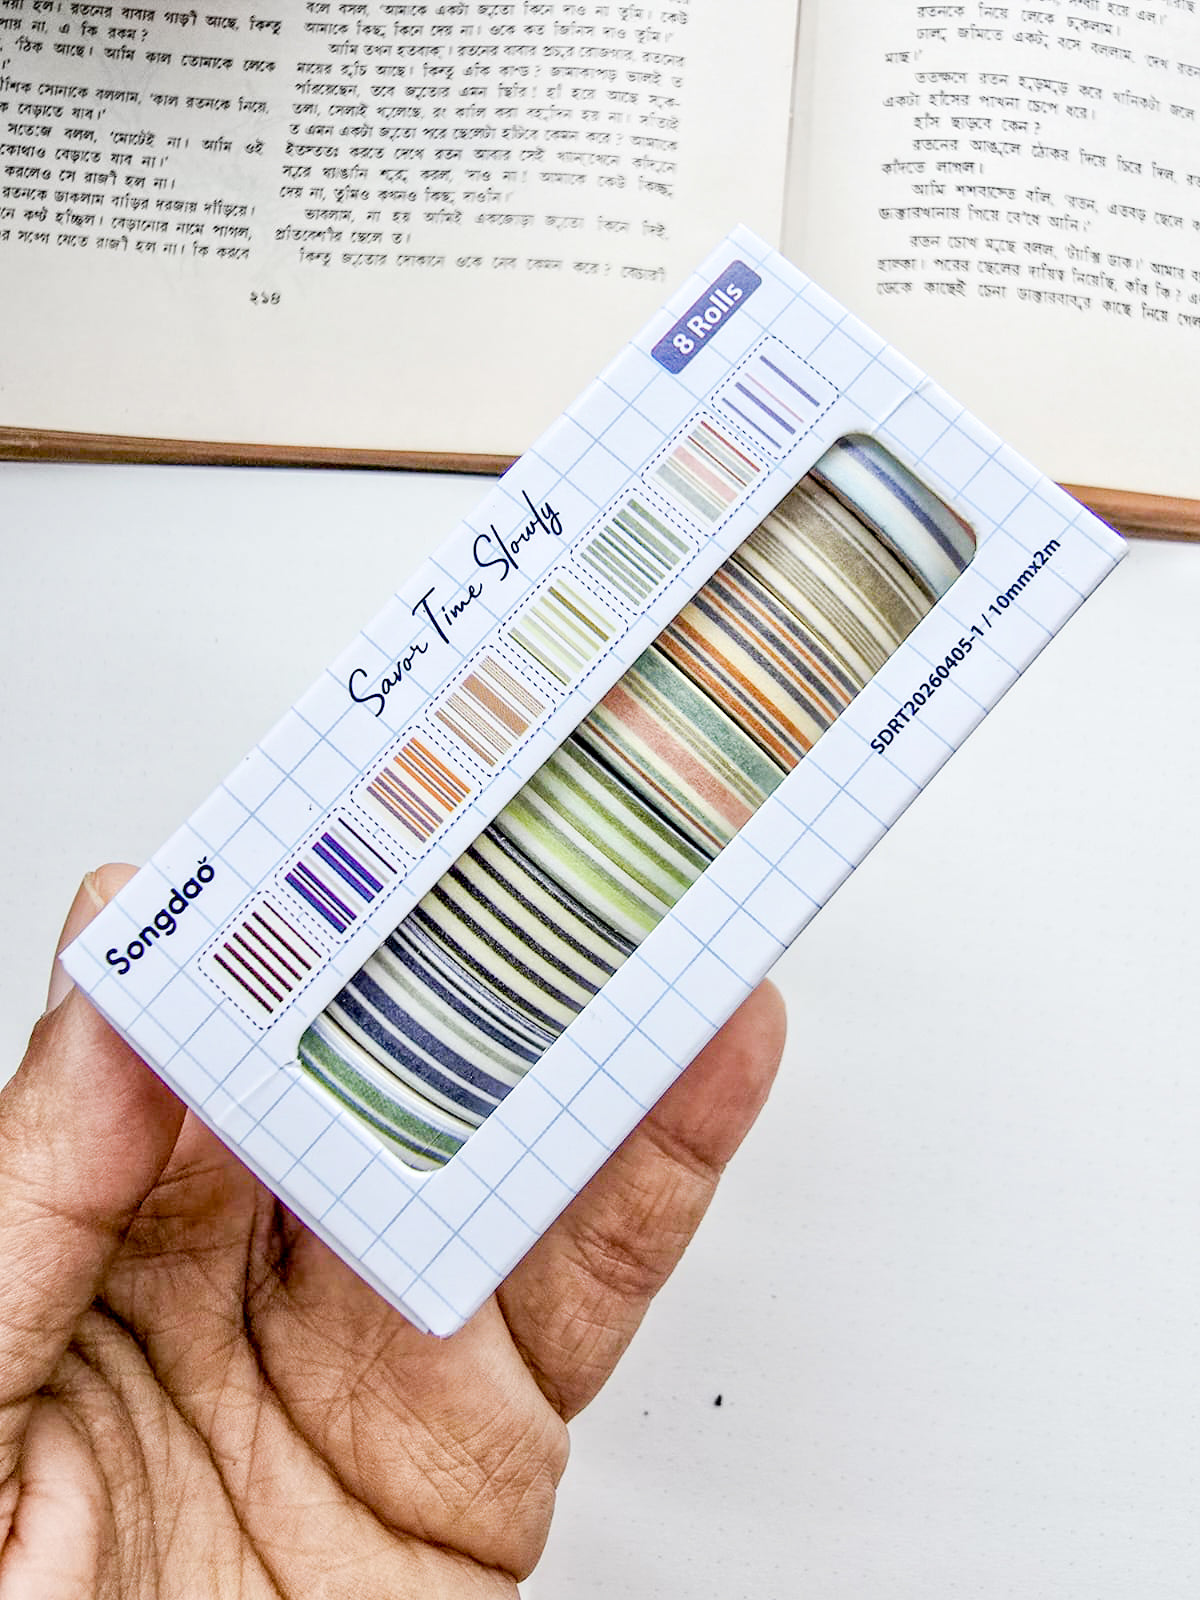 হল। রতনের বাবার গাড়ী আছে, কিন্তু
পায় না, এ কি রকম?
'ঠিক আছে। আমি কাল তোমাকে লেকে
শিক সোনাকে বললাম, 'কাল রতনকে নিয়ে,
ক বেড়াতে যাব।'
সতেজে বলল, 'মোটেই না। আমি ওই
কোথাও বেড়াতে যাব না।'
করলেও সে রাজী হল না।
রতনকে ডাকলাম বাড়ির দরজায় দাঁড়িয়ে।
নে কষ্ট হচ্ছিল। বেড়ানোর নামে পাগল,
র সঙ্গে যেতে রাজী হল না। কি করবে
২১৪
বলে বসল, 'আমাকে একটা জুতো কিনে দাও না তুমি। কেউ
আমাকে কিছু কিনে দেয় না। ওকে কত জিনিস দাও তুমি।'
আমি তখন হতবাক্। রতনের বাবার প্রচুর রোজগার, রতনের
মায়ের রুচি আছে। কিন্তু একি কাণ্ড? জামাকাপড় ভালই ত
পরিয়েছেন, তবে জুতোর এমন ছিরি! হাঁ হয়ে আছে সুক-
তলা, সেলাই খুলেছে, রং কালি করা বহুদিন হয় না। সত্যিই
ত এমন একটা জুতো পরে ছেলেটা হাঁটবে কেমন করে? আমাকে
ইতস্ততঃ করতে দেখে রতন আবার সেই ঘ্যানঘেনে কাঁদুনে
সুরে ঘ্যাঙানি শুরু করল, 'দাও না! আমাকে কেউ কিচ্ছু
দেয় না, তুমিও কখনও কিছু দাওনি।'
ভাবলাম, না হয় আমিই একজোড়া জুতো কিনে দিই,
প্রতিবেশীর ছেলে ত।
কিন্তু জুতোর দোকানে ওকে নেব কেমন করে? বেচারী
রতনকে নিয়ে লেকে ঢুকলাম।
ঢালু জমিতে একটু বসে বললাম, 'দেখ রতন
মাছ।'
ততক্ষণে রতন হুড়মুড় করে খানিকটা জলে
একটা হাঁসের পাখনা চেপে ধরে।
হাঁস ছাড়বে কেন?
রতনের আঙুলে ঠোকর দিয়ে চিরে দিল,
কাঁদতে লাগল।
আমি শশব্যস্তে বলি, 'রতন, এতবড় ছেলে
ডাক্তারখানায় গিয়ে বেঁধে আনি।'
রতন চোখ মুছে বলল, 'ট্যাক্সি ডাক।' আমার
হাল্কা। পরের ছেলের দায়িত্ব নিয়েছি, করি কি?
ডেকে কাছেই চেনা ডাক্তারবাবুর কাছে নিয়ে গেল
8 Rolls
Savor Time Slowly
Songdaŏ
SDRT20260405-1 / 10mmx2m